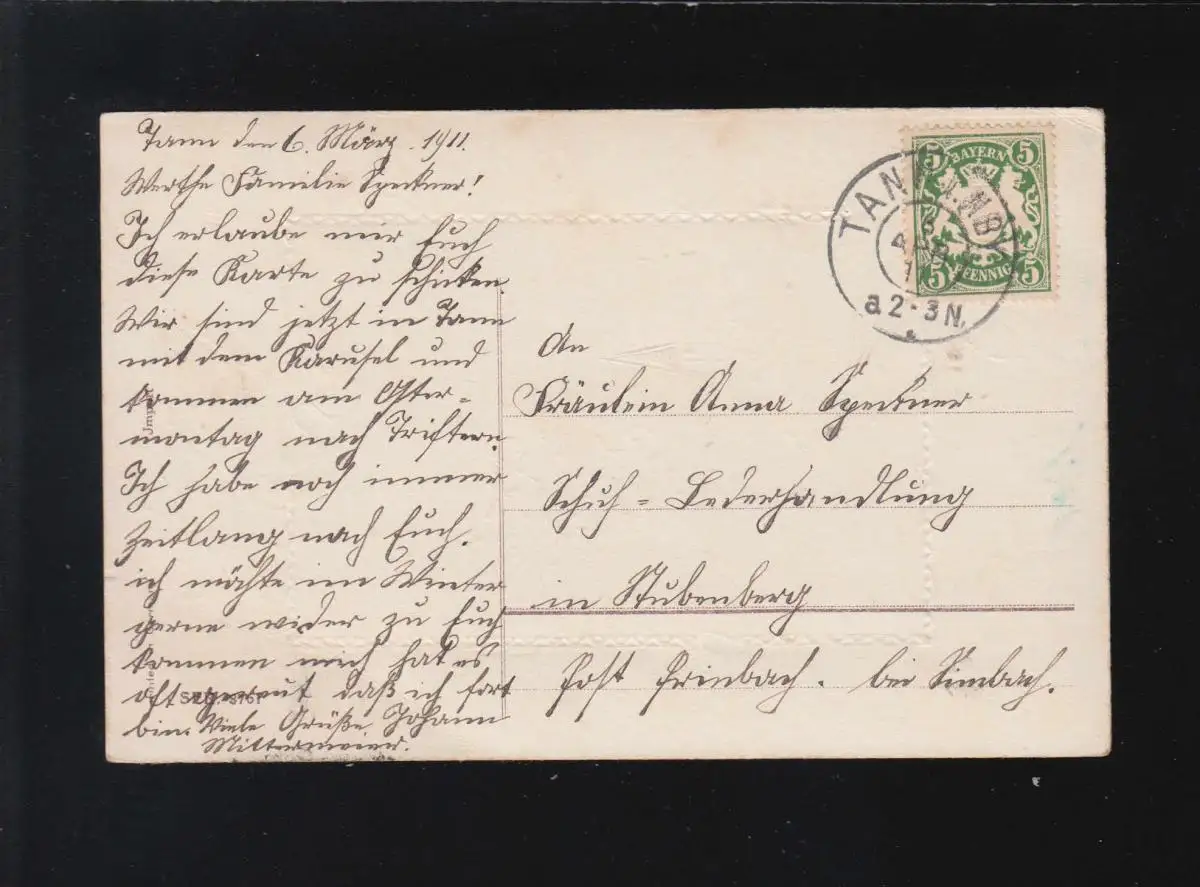 Tann den 6. März. 1911.
Werthe Familie Speckner!
Ich erlaube mir Euch
diese Karte zu schicken.
Wir sind jetzt in Tann
mit dem Karusel und
kommen am Oster-
montag nach Triftern.
Ich habe noch immer
Zeitlang nach Euch.
ich möchte im Winter
gerne wider zu Euch
kommen mich hat es
oft gereut daß ich fort
bin. Viele Grüße Johann
Mittermeier.
5 BAYERN 5
5 PFENNIG 5
a 2-3 N.
An
Fräulein Anna Speckner
Schuh-Lederhandlung
in Stubenberg
Post Prinbach. bei Simbach.